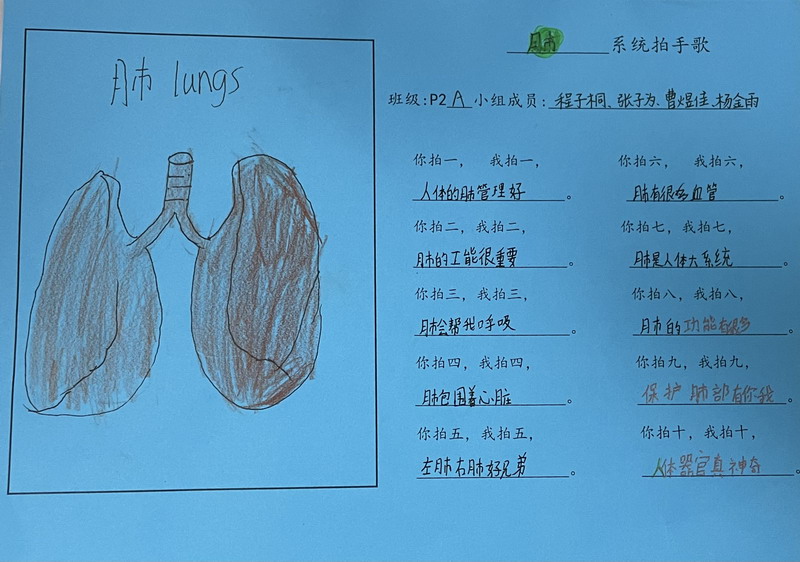 肺 lungs
肺系统拍手歌
班级:P2A 小组成员:程子桐、张子为、曹煜佳、杨金雨
你拍一，我拍一，
人体的肺管理好。
你拍二，我拍二，
肺的工能很重要。
你拍三，我拍三，
肺会帮我呼吸。
你拍四，我拍四，
肺包围着心脏。
你拍五，我拍五，
左肺右肺好兄弟。
你拍六，我拍六，
肺有很多血管。
你拍七，我拍七，
肺是人体大系统。
你拍八，我拍八，
肺的功能有很多。
你拍九，我拍九，
保护肺部有你我。
你拍十，我拍十，
人体器官真神奇。